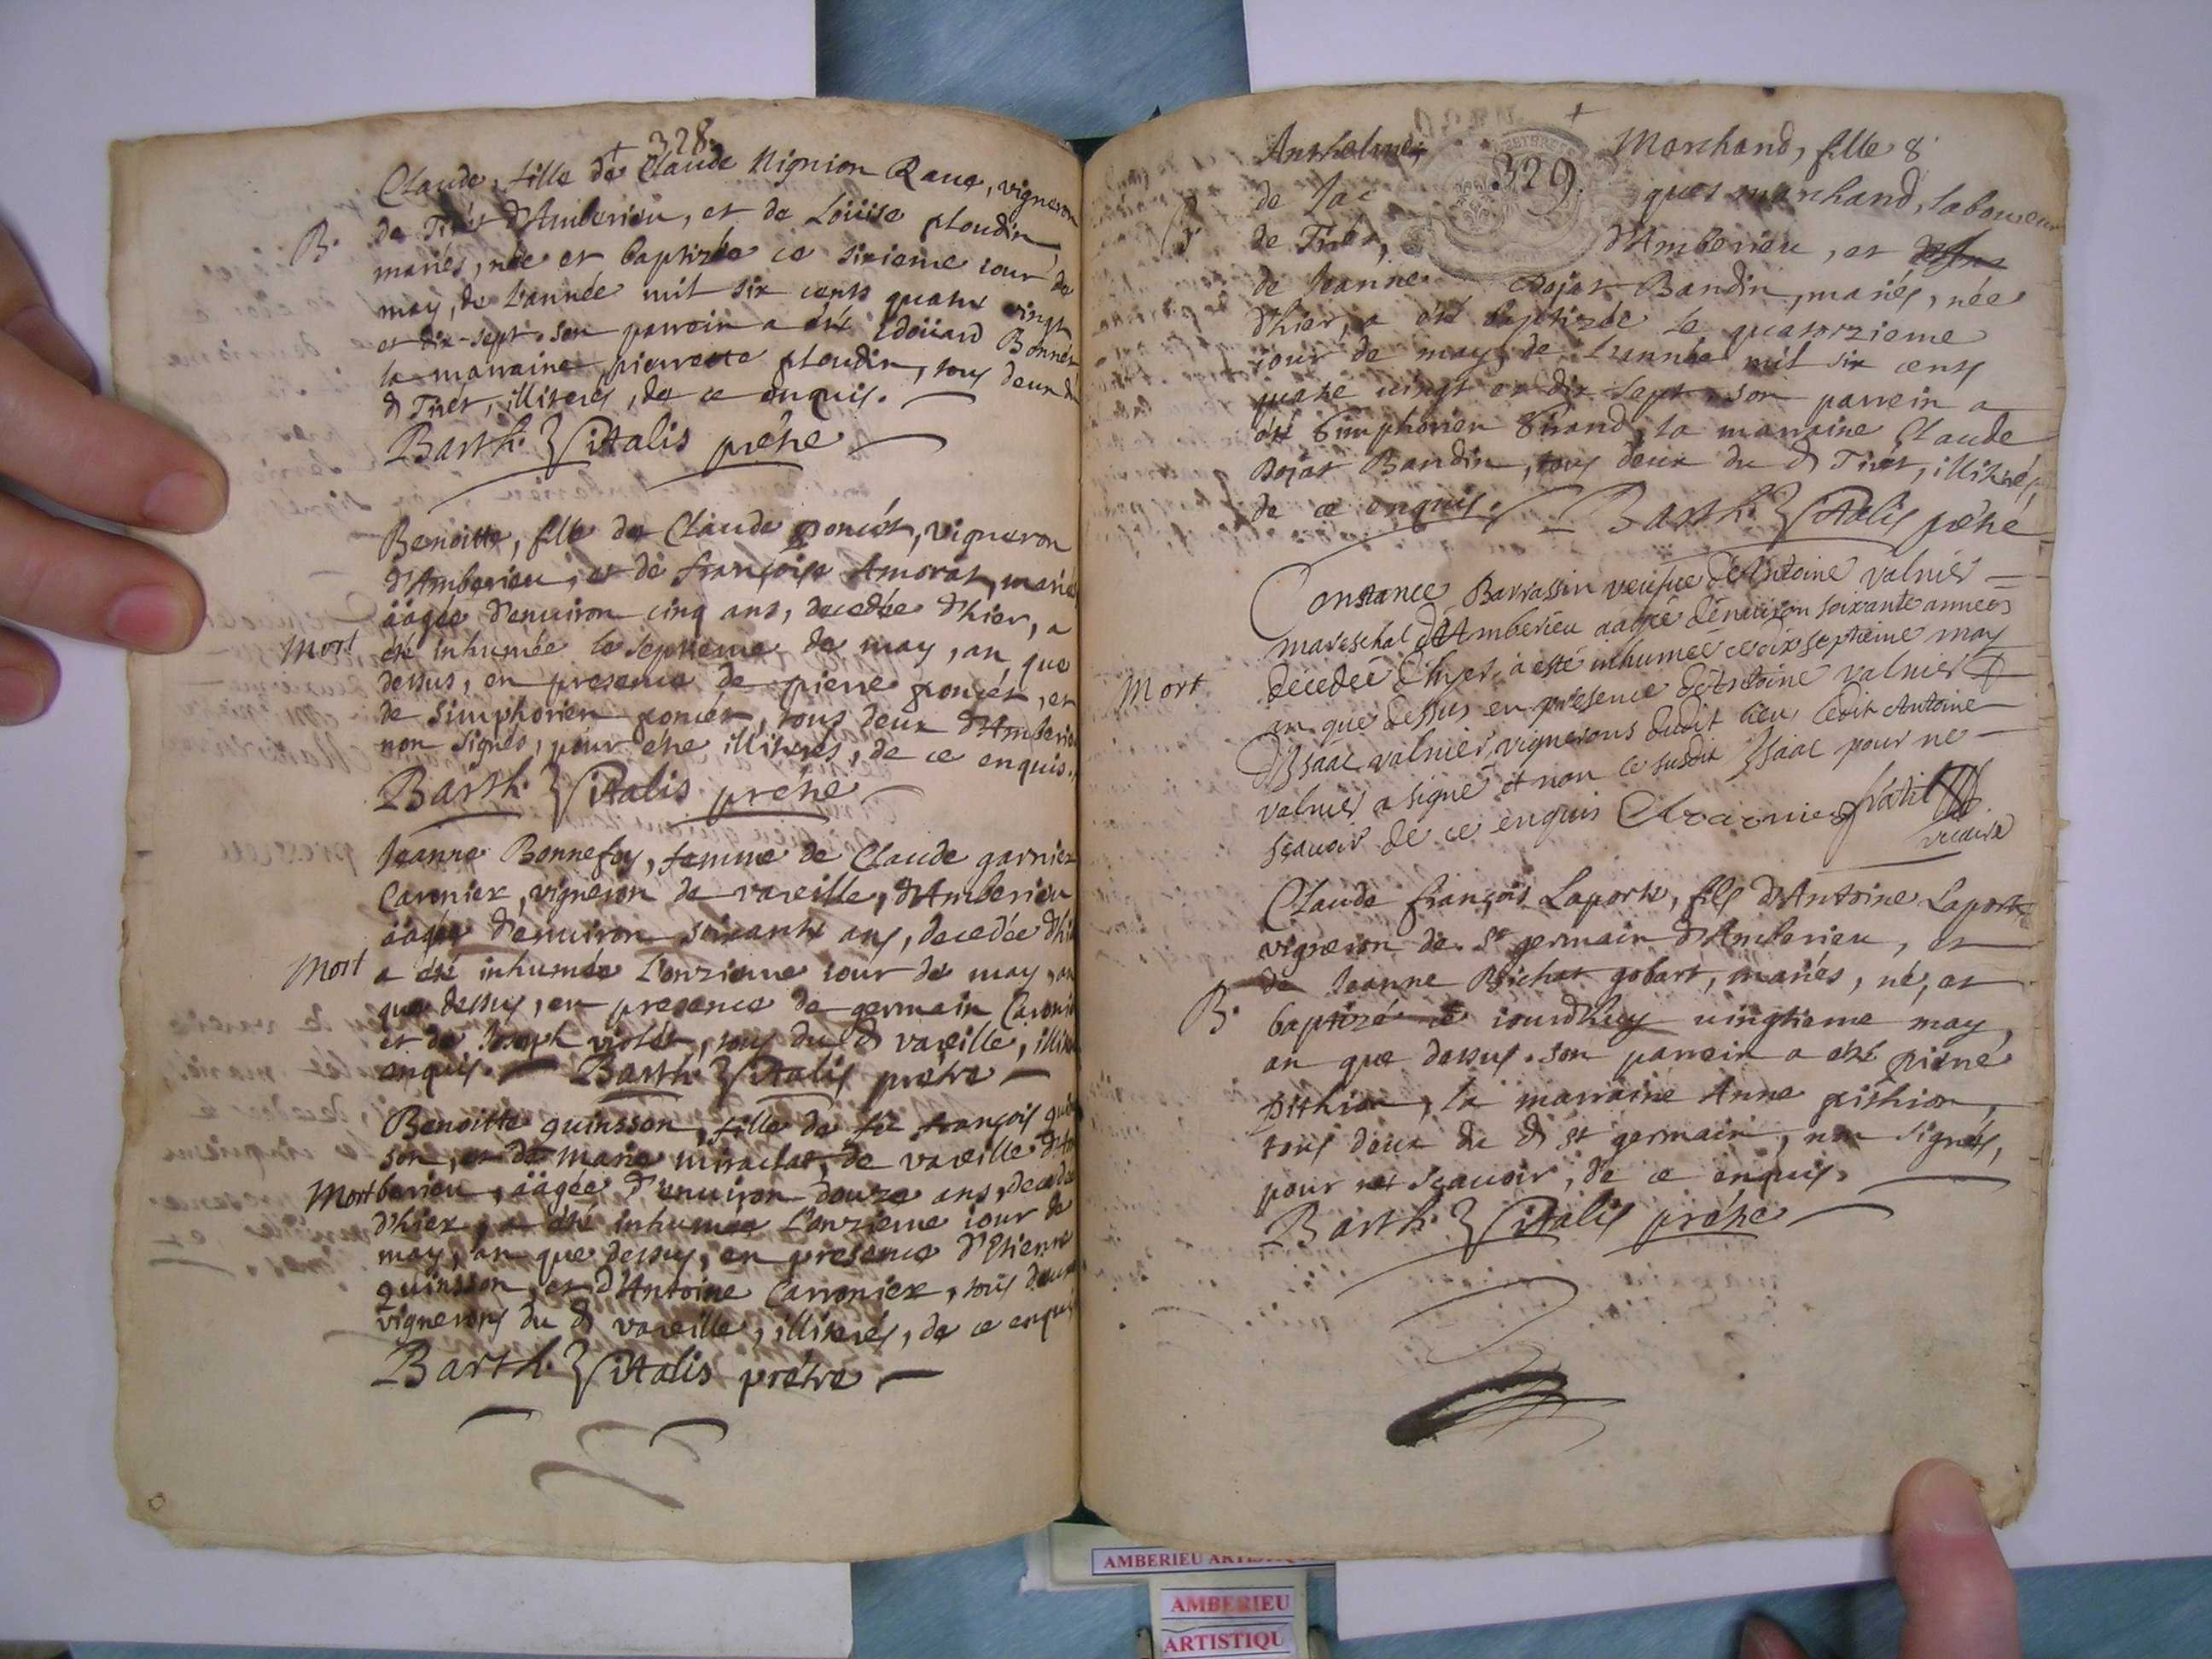 + 328.
Claude, fille de Claude Nignion Rave, vigneron
de Tirét d'Amberieu, et de Loüise ploudin,
B. mariés, née et baptizée ce sixieme iour de
may, de l'année mil six cents quatre vingt
et dix-sept. son parrein a été Edoüard Bonnét
la marraine pierrette ploudin, tous deux du
d Tirét, illiterés, de ce enquis.
Barth. Vitalis prétre
Benoitte, fille de Claude poncét, vigneron
d'Amberieu, et de françoise Amorat, mariés
äagée d'enuiron cinq ans, decedée d'hier, a
Mort été inhumée le septieme de may, an que
dessus, en presence de pierre poncét, et
de simphorien poncét, tous deux d'Amberieu
non signés, pour étre illiterés, de ce enquis.
Barth. Vitalis prétre
Jeanne Bonnefoy, femme de Claude garnier
Carronier, vigneron de vareille, d'Amberieu
äagée d'enuiron soixante ans, decedée d'hier
Mort a été inhumée l'onzieme iour de may, an
que dessus, en presence de germain Carronier
et de Joseph violét, tous du d vareille, illiterés
enquis. Barth. Vitalis prétre
Benoitte quinsson, fille de fu françois quin
son, et de marie miraclat, de vareille d'Am
Mort berieu, äagée d'enuiron douze ans, decedée
d'hier, a été inhumée l'onzieme iour de
may, an que dessus, en presence d'Etienne
quinsson, et d'Antoine Carronier, tous deux
vignerons du d vareille, illiterés, de ce enquis
Barth. Vitalis prétre
+
329.
Anthelme Marchand, fille
de Jacques marchand, laboureur
B. de Tirét, d'Amberieu, et
de Jeanne Dojat Bandin, mariés, née
d'hier, a été baptizée le quatorzieme
iour de may, de l'année mil six cents
quatre vingt et dix sept. son parrein a
été Simphorien Girand, la marraine Claude
Dojat Bandin, tous deux du d Tirét, illiterés,
de ce enquis. Barth. Vitalis prétré
Constance Barrassin veufue d'Antoine valnier
mareschal d'Amberieu aagée d'enuiron soixante années
Mort decedée d'hyer, a esté inhumée ce dix septieme may
an que dessus en presence d'Antoine valnier &
d'Issaac valnier, vignerons dudit lieu, ledit Antoine
valnier a signé et non ce susdit Isaac pour ne
sçauoir de ce enquis
vicaire
Claude françois Laporte, fils d'Antoine Laporte
vigneron de St germain d'Amberieu, et
de Jeanne Bichat gobart, mariés, né, et
B. baptizé ce iourdhuy vingtieme may,
an que dessus. son parrein a été pierre
pithion, la marraine Anne pithion,
tous deux du d St germain, non signés,
pour ne sçauoir, de ce enquis.
Barth. Vitalis prétre
AMBERIEU
AMBERIEU
ARTISTIQU